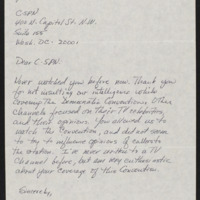 C-SPAN
400 N. Capitol St. N.W.
Suite 155
Wash. DC. 20001
Dear C-SPAN,
Never watched you before now. Thank you
for not insulting our intelligence while
covering the Democratic Convention. Other
channels focused on their TV celebrities
and their opinions. You allowed us to
watch the Convention, and did not seem
to try to influence opinions
I've never written to a TV
Channel before, but am very enthusiastic
about your coverage of this Convention.
Sincerely,